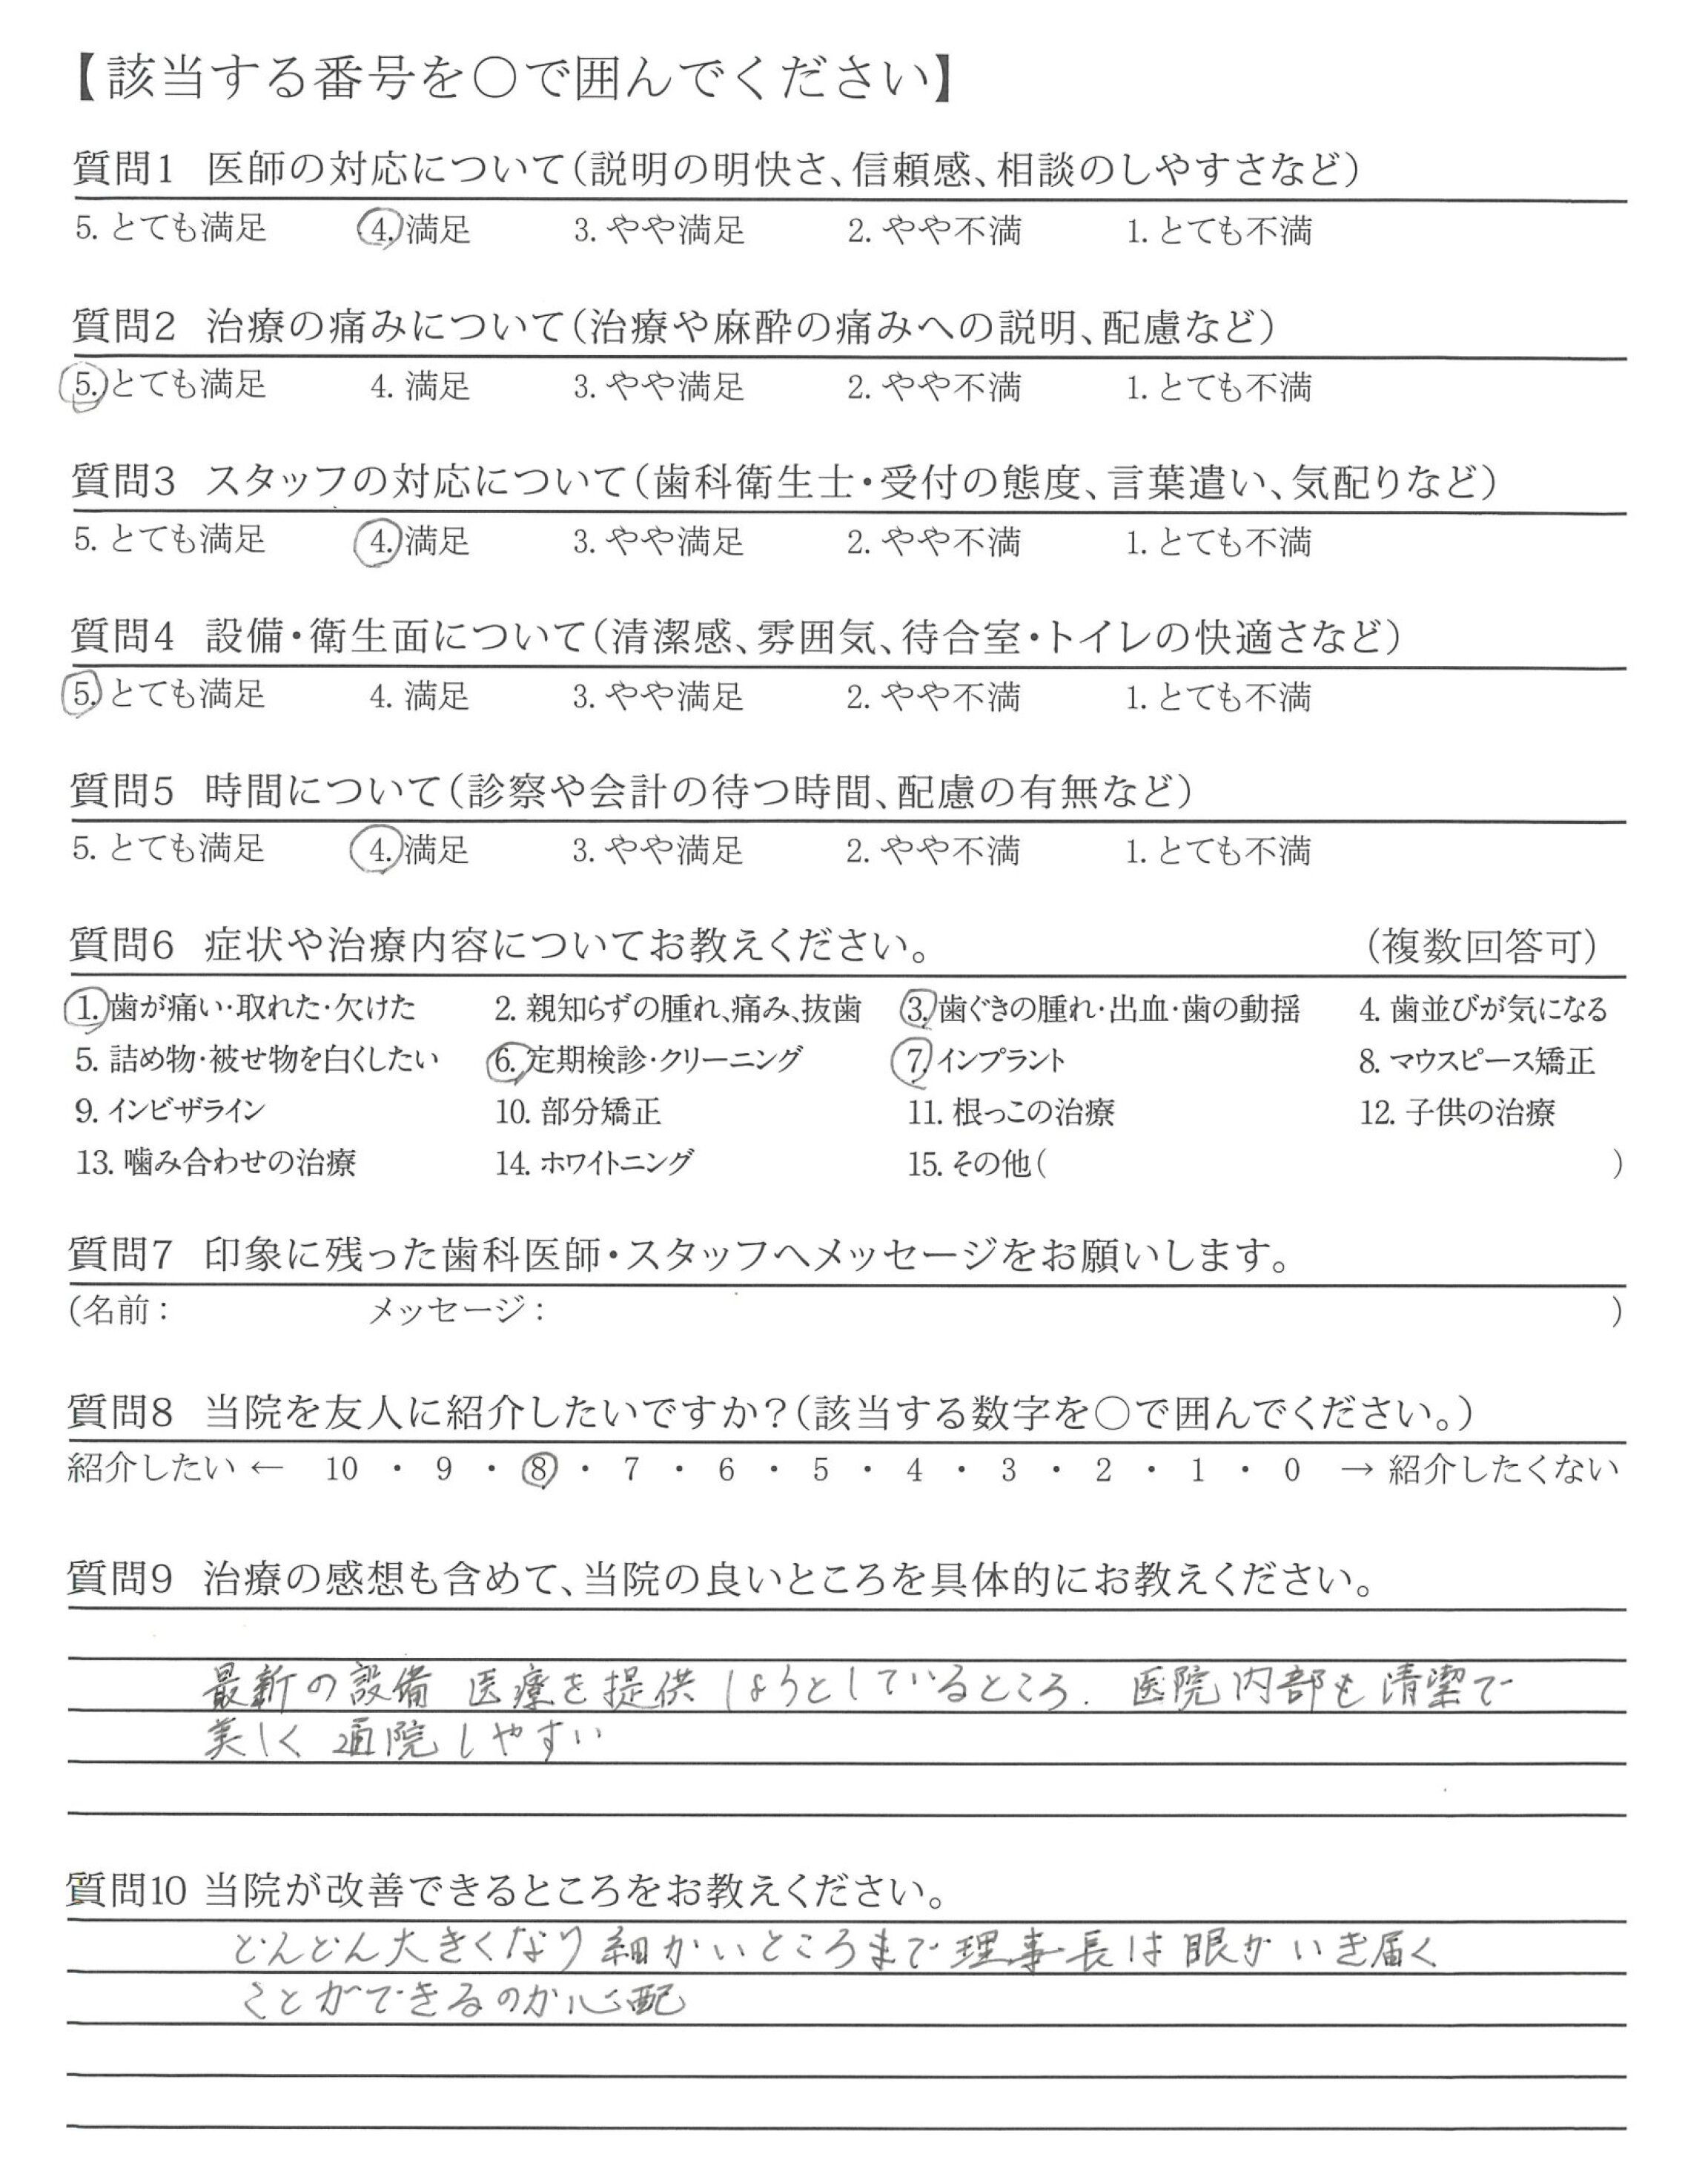 【該当する番号を○で囲んでください】
質問1 医師の対応について(説明の明快さ、信頼感、相談のしやすさなど)
5. とても満足 4. 満足 3. やや満足 2. やや不満 1. とても不満
質問2 治療の痛みについて(治療や麻酔の痛みへの説明、配慮など)
5. とても満足 4. 満足 3. やや満足 2. やや不満 1. とても不満
質問3 スタッフの対応について(歯科衛生士・受付の態度、言葉遣い、気配りなど)
5. とても満足 4. 満足 3. やや満足 2. やや不満 1. とても不満
質問4 設備・衛生面について(清潔感、雰囲気、待合室・トイレの快適さなど)
5. とても満足 4. 満足 3. やや満足 2. やや不満 1. とても不満
質問5 時間について(診察や会計の待つ時間、配慮の有無など)
5. とても満足 4. 満足 3. やや満足 2. やや不満 1. とても不満
質問6 症状や治療内容についてお教えください。 (複数回答可)
1. 歯が痛い・取れた・欠けた 2. 親知らずの腫れ、痛み、抜歯 3. 歯ぐきの腫れ・出血・歯の動揺 4. 歯並びが気になる
5. 詰め物・被せ物を白くしたい 6. 定期検診・クリーニング 7. インプラント 8. マウスピース矯正
9. インビザライン 10. 部分矯正 11. 根っこの治療 12. 子供の治療
13. 噛み合わせの治療 14. ホワイトニング 15. その他( )
質問7 印象に残った歯科医師・スタッフへメッセージをお願いします。
(名前: メッセージ: )
質問8 当院を友人に紹介したいですか?(該当する数字を○で囲んでください。)
紹介したい ← 10 ・ 9 ・ 8 ・ 7 ・ 6 ・ 5 ・ 4 ・ 3 ・ 2 ・ 1 ・ 0 → 紹介したくない
質問9 治療の感想も含めて、当院の良いところを具体的にお教えください。
最新の設備 医療を提供しようとしているところ. 医院内部も清潔で
美しく 通院しやすい
質問10 当院が改善できるところをお教えください。
どんどん大きくなり細かいところまで理事長は眼がいき届く
ことができるのか心配